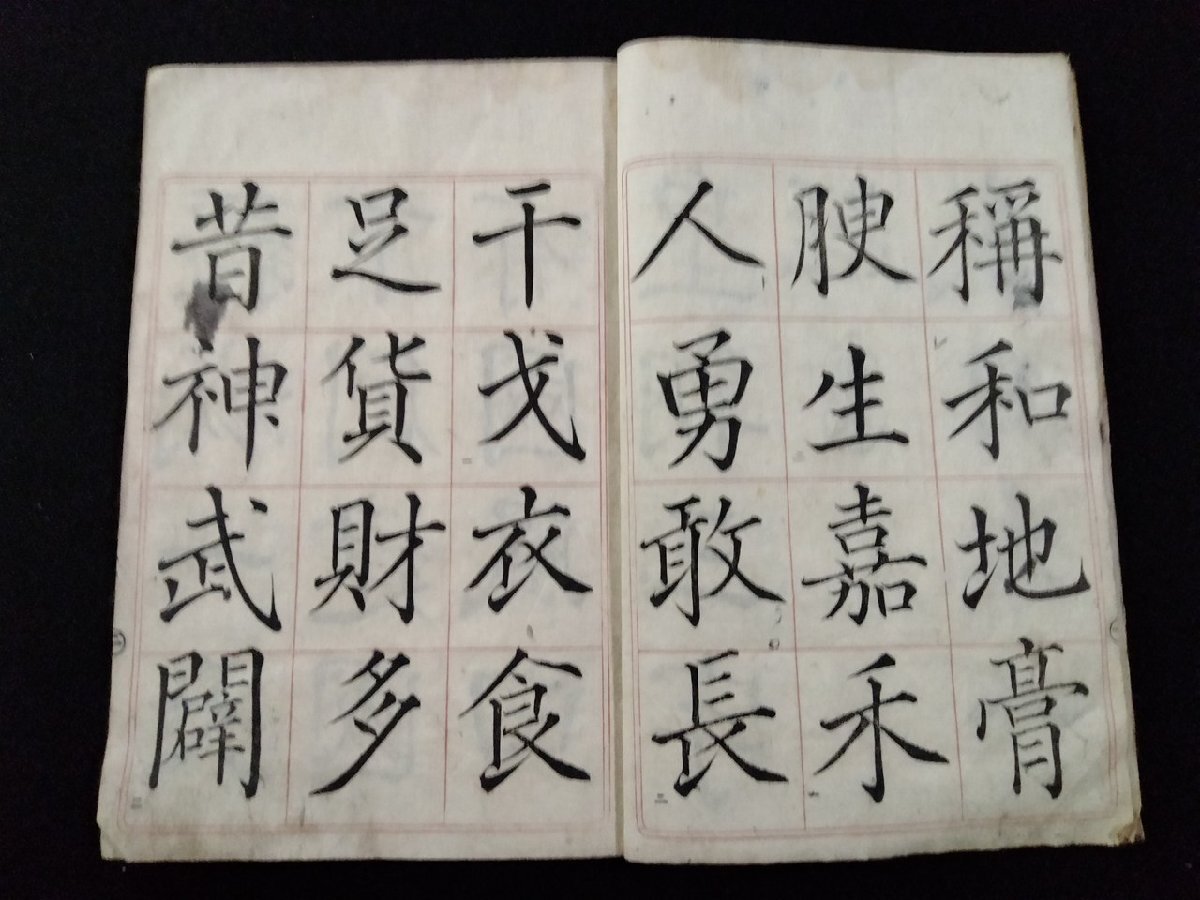 稱和地膏
腴生嘉禾
人勇敢長
干戈衣食
足貨財多
昔神武闢